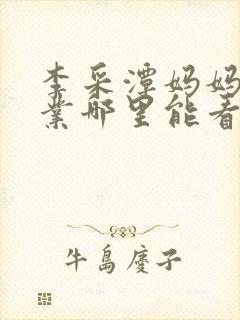 李采潭妈妈
业哪里能看
牛島慶子